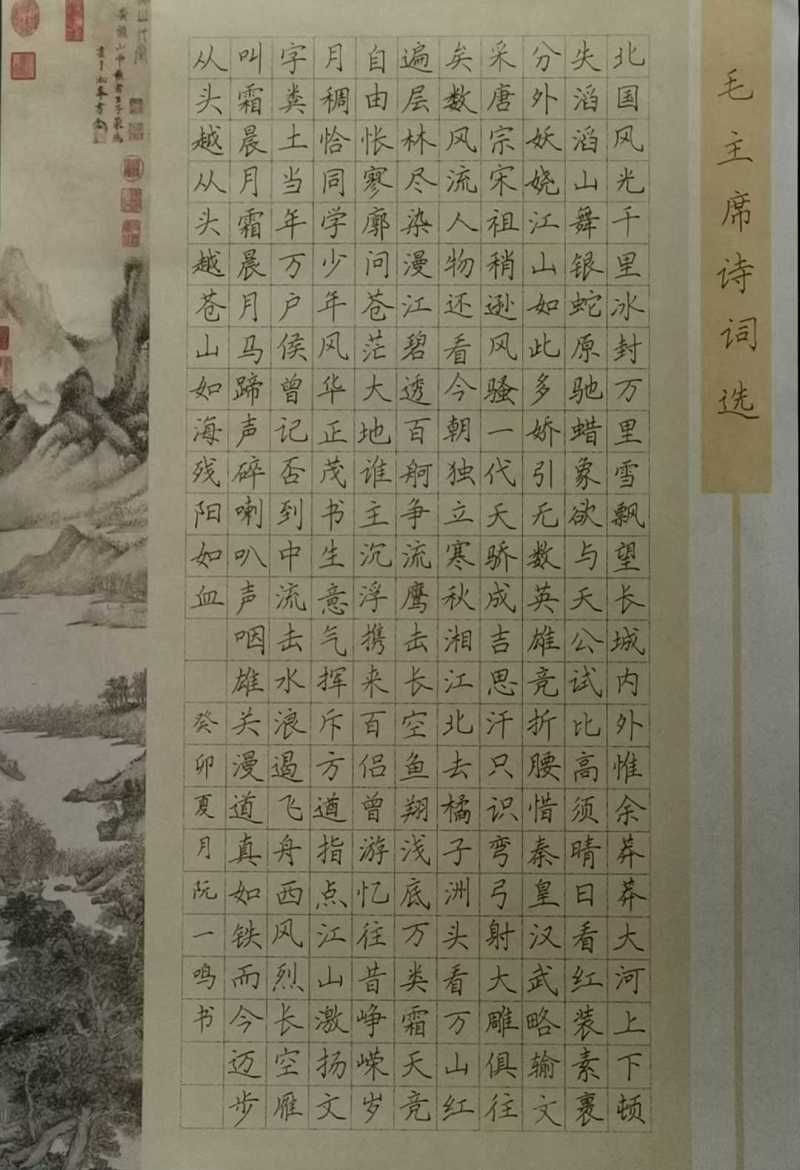 毛主席诗词选
北国风光千里冰封万里雪飘望长城内外惟余莽莽大河上下顿
失滔滔山舞银蛇原驰蜡象欲与天公试比高须晴日看红装素裹
分外妖娆江山如此多娇引无数英雄竞折腰惜秦皇汉武略输文
采唐宗宋祖稍逊风骚一代天骄成吉思汗只识弯弓射大雕俱往
矣数风流人物还看今朝独立寒秋湘江北去橘子洲头看万山红
遍层林尽染漫江碧透百舸争流鹰击长空鱼翔浅底万类霜天竞
自由怅寥廓问苍茫大地谁主沉浮携来百侣曾游忆往昔峥嵘岁
月稠恰同学少年风华正茂书生意气挥斥方遒指点江山激扬文
字粪土当年万户侯曾记否到中流击水浪遏飞舟西风烈长空雁
叫霜晨月霜晨月马蹄声碎喇叭声咽雄关漫道真如铁而今迈步
从头越从头越苍山如海残阳如血
癸卯夏月阮一鸣书